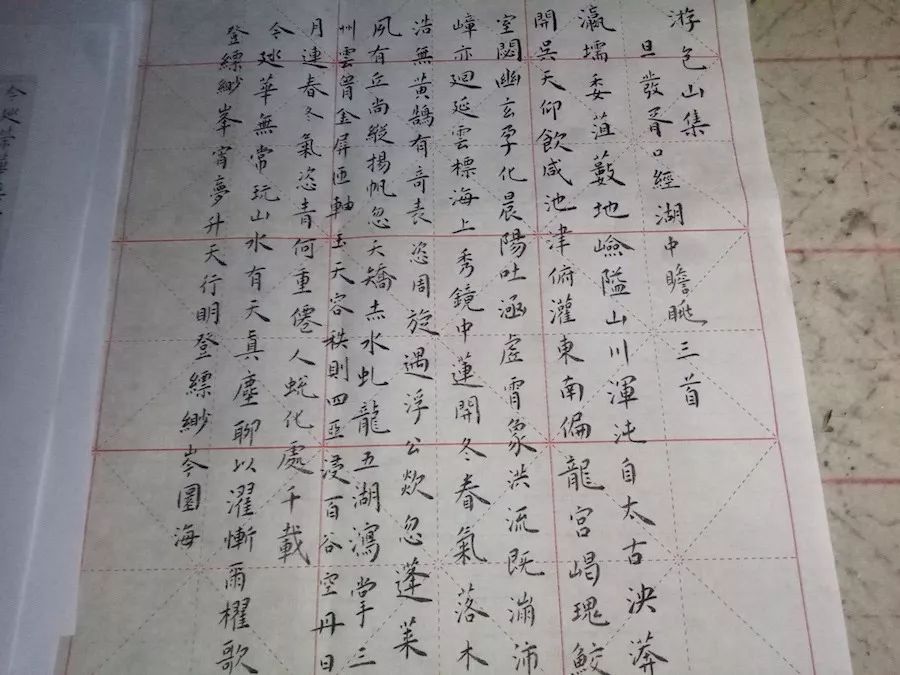 游包山集
旦發胥口經湖中瞻眺三首
瀛壖委菹藪地嶮隘山川渾沌自太古泱漭
開吳天仰飲咸池津俯灌東南偏龍宮嵑瑰鮫
室閟幽玄孕化晨陽吐涵虛霄象洪流既漰沛
嶂亦迴延雲標海上秀鏡中蓮開冬春氣落木
浩無黃鵠有奇表恣周旋遇浮公欻忽蓬萊
夙有丘尚縱揚帆忽夭矯赤水虬龍五湖瀉掌三
州雲胷金屏匝軸玉天容秩則四亞浸百谷空丹日
月連春冬氣恣青何重僊人蛻化處千載
令逖華無常玩山水有天真塵聊以濯慚爾櫂歌
登縹緲峯宵夢升天行明登縹緲岑圍海